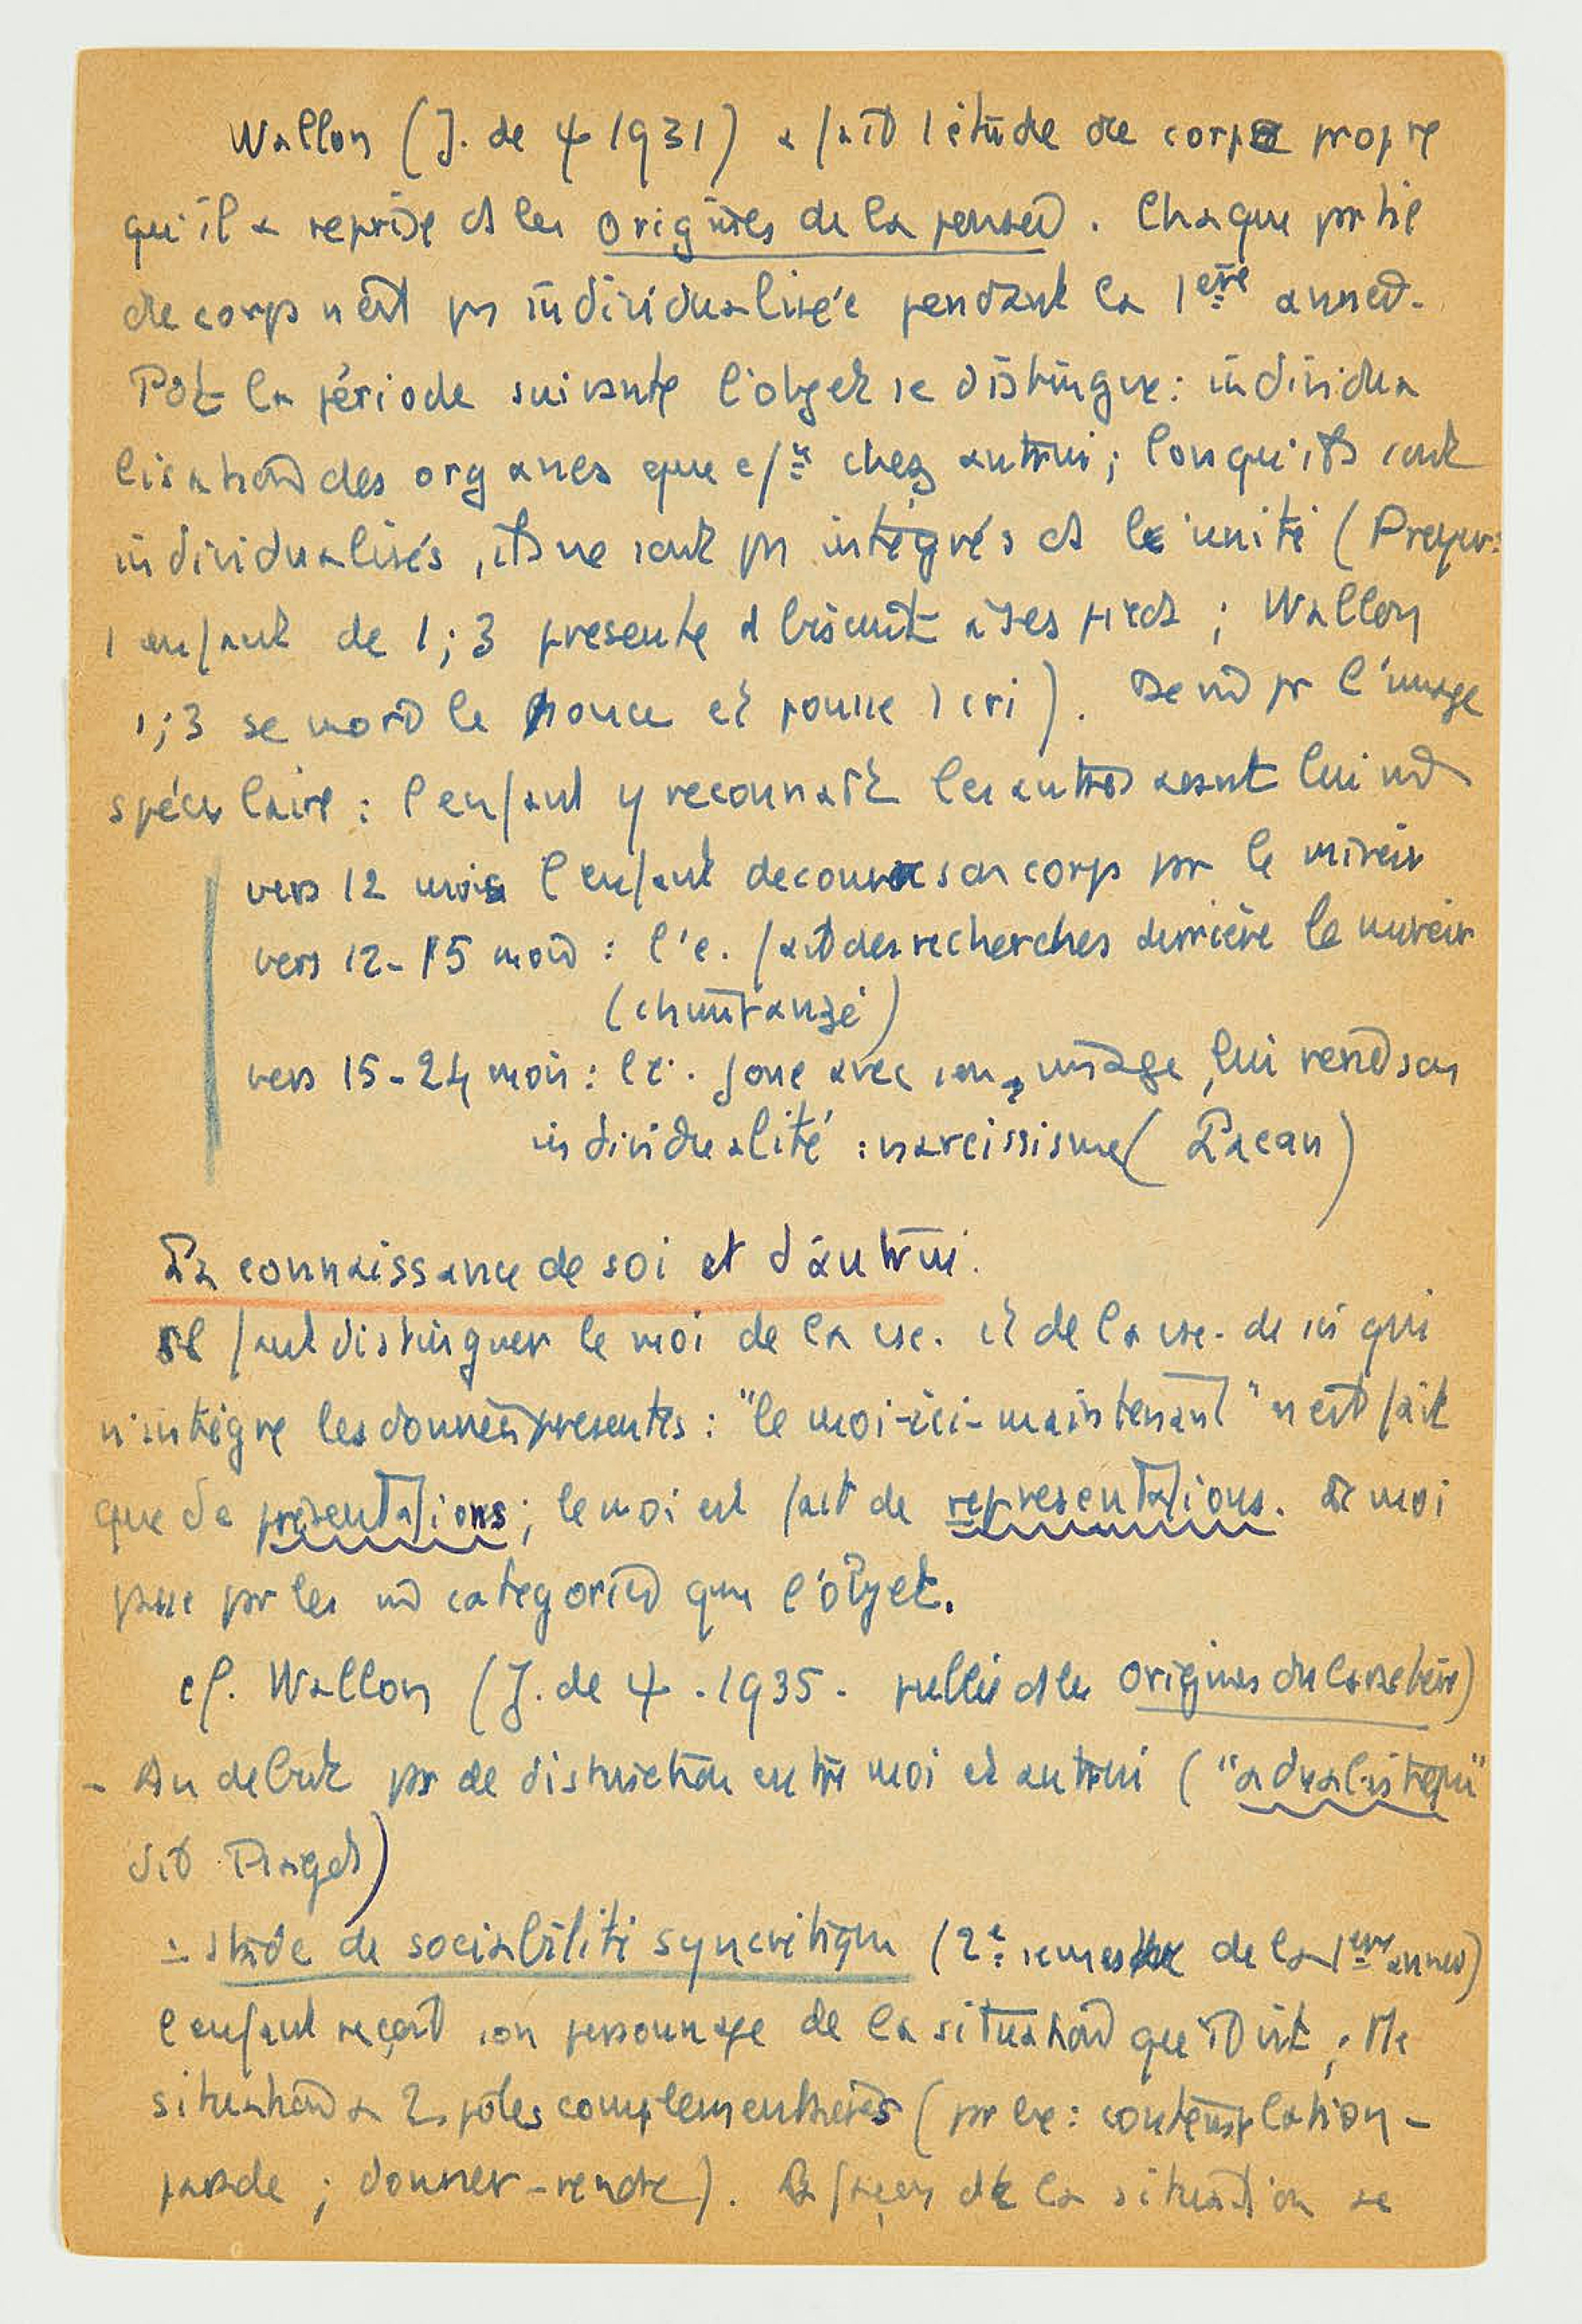 Wallon (J. de ψ 1931) a fait l'étude du corps propre
qu'il a reprise ds les origines de la pensée. Chaque partie
du corps n'est pas individualisée pendant la 1ère année.
Pdt la période suivante l'objet se distingue : individua
lisation des organes que chez autrui ; lorsqu'ils sont
individualisés, ils ne sont pas intégrés ds le unité (Preyer :
1 enfant de 1;3 présente d biscuit à ses pieds ; Wallon
1;3 se mord le pouce et pousse 1 cri). De m pr l'image
spéculaire : l'enfant y reconnaît les autres avant lui m
vers 12 mois l'enfant découvre son corps par le miroir
vers 12-15 mois : l'e. fait des recherches derrière le miroir
(chimpanzé)
vers 15-24 mois : l'e. joue avec son image, lui rend son
individualité : narcissisme (Lacan)
La connaissance de soi et d'autrui.
Il faut distinguer le moi de la csc. et de la csc. de soi qui
n'intègre les données présentes : "le moi-ici-maintenant" n'est fait
que de présentations ; le moi est fait de représentations. Le moi
passe par les m catégories que l'objet.
cf. Wallon (J. de ψ. 1935. publié ds les Origines du Caractère)
- Au début pas de distinction entre moi et autrui ("adualistique"
dit Piaget)
- stade de sociabilité syncrétique (2e semestre de la 1ère année)
l'enfant reçoit son personnage de la situation qu'il vit ;
situation a 2 pôles complémentaires (par ex : contemplation -
parade ; donner - rendre). La façon de la situation se